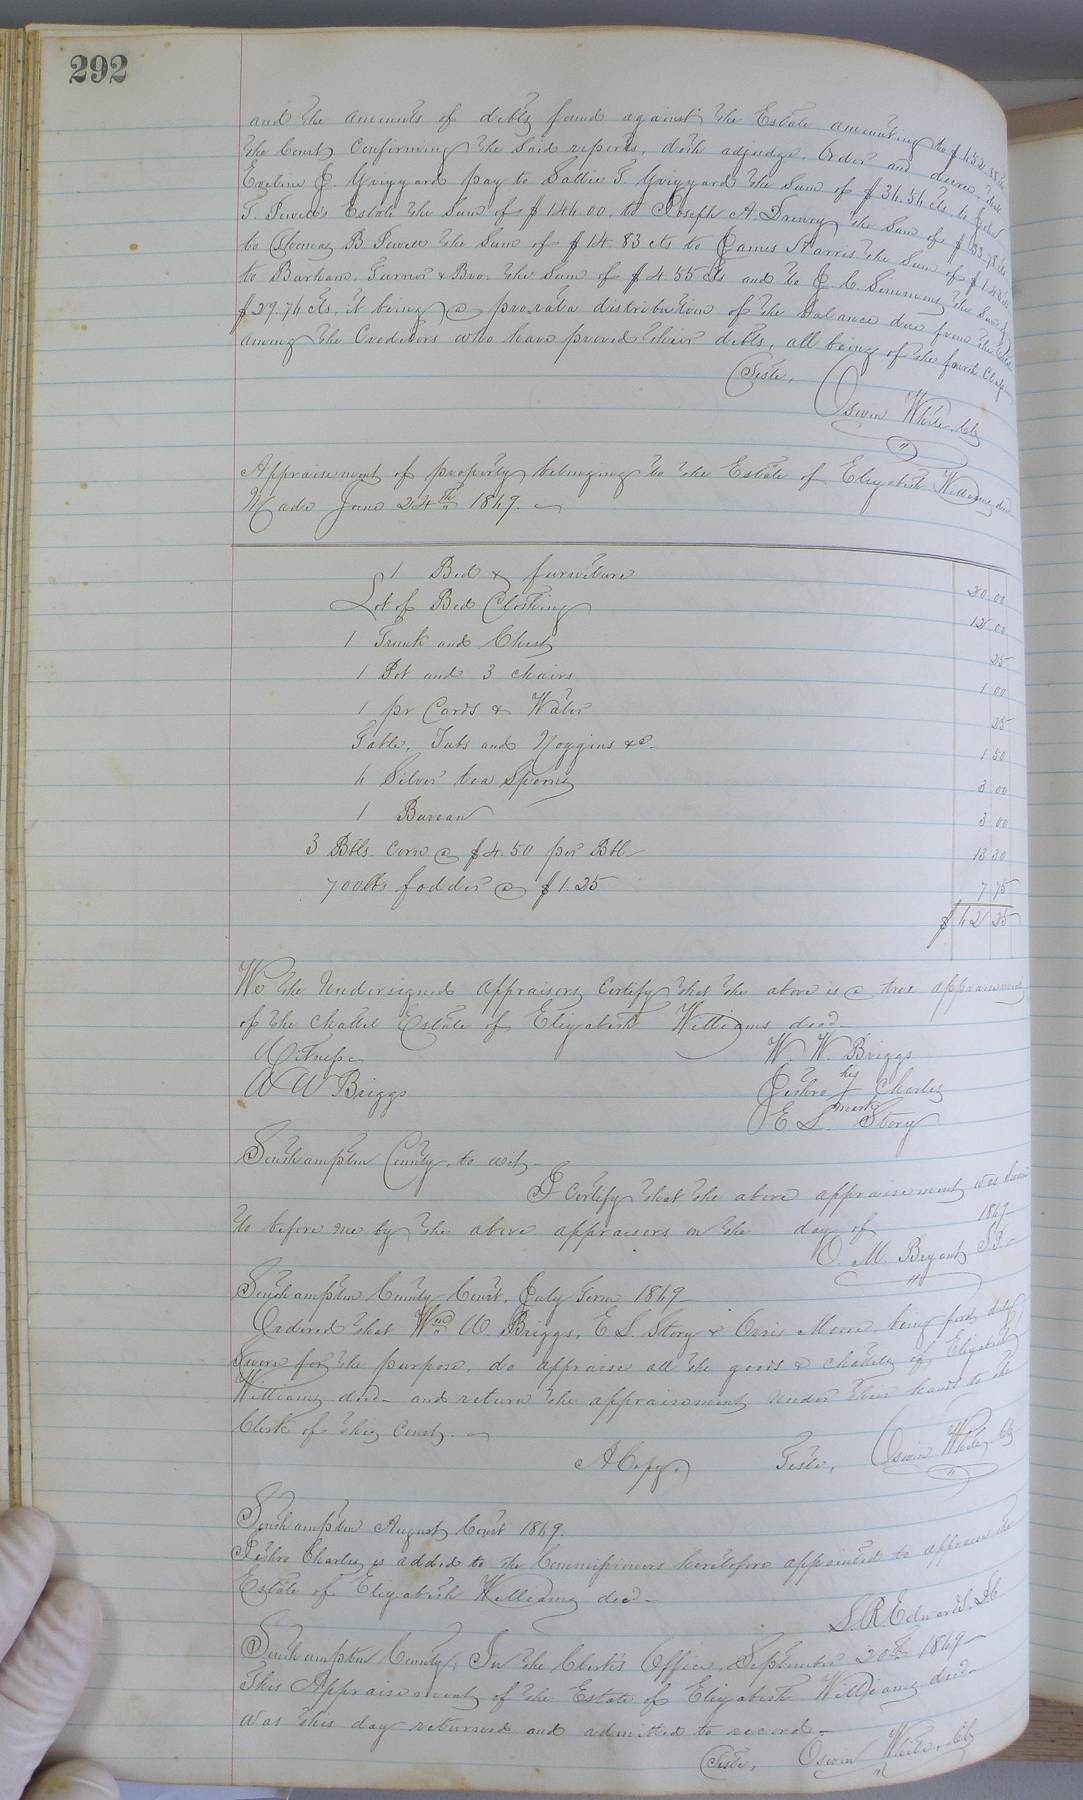 292
and the amounts of debts found against the Estate amounting to $
the Court confirming the said reports, doth adjudge, Order and decree, that
Eveline J. Grizzard pay to Sallie T. Grizzard the Sum of $36.56 cts to
T. Sewell's Estate the Sum of $144.00, to Joseph A Drewry the Sum of $
to Thomas B Sewell the Sum of $14.83 cts to James Harris the Sum of $
to Barham Turner & Bro. the Sum of $4.55 cts and to J. C. Simmons the Sum of
$29.76 cts, it being a prorata distribution of the balance due from the Estate
among the Creditors who have proved their debts, all being of the fourth Class
Teste, Oswin White, Clk
Appraisement of property belonging to the Estate of Elizabeth Williams decd
Made June 24th 1869.
1 Bed & furniture 20 00
Lot of Bed Clothing 12 00
1 Trunk and Chest 25
1 Pot and 3 chairs 1 00
1 pr Cards & Water 25
Table, Tubs and Noggins &c. 1 50
4 Silver tea Spoons 3 00
1 Bureau 3 00
3 Bbls Corn @ $4.50 per Bbl 13 50
700 lbs fodder @ $1.25 7 75
$62 25
We the Undersigned Appraisers Certify that the above is a true appraisement
of the chattel Estate of Elizabeth Williams decd
Witness W. W. Briggs
W W Briggs Jethro his Charles
mark
E S. Story
Southampton County, to wit,
I certify that the above appraisement was Sworn
to before me by the above appraisers on the day of 1869
O. M. Bryant J.P.
Southampton County Court, July Term 1869
Ordered that Wm W Briggs, E S. Story & Orris Moore, being first duly
Sworn for the purpose, do appraise all the goods & chattels of Elizabeth
Williams decd and return the appraisement under their hands to the
Clerk of this Court.
A Copy, Teste, Oswin White, Clk
Southampton August Court 1869.
Jethro Charles is added to the Commissioners heretofore appointed to appraise the
Estate of Elizabeth Williams decd
S. R. Edwards, DC
Southampton County, In the Clerk's Office, September 20th 1869
This Appraisement of the Estate of Elizabeth Williams decd
was this day returned and admitted to record.
Teste, Oswin White, Clk